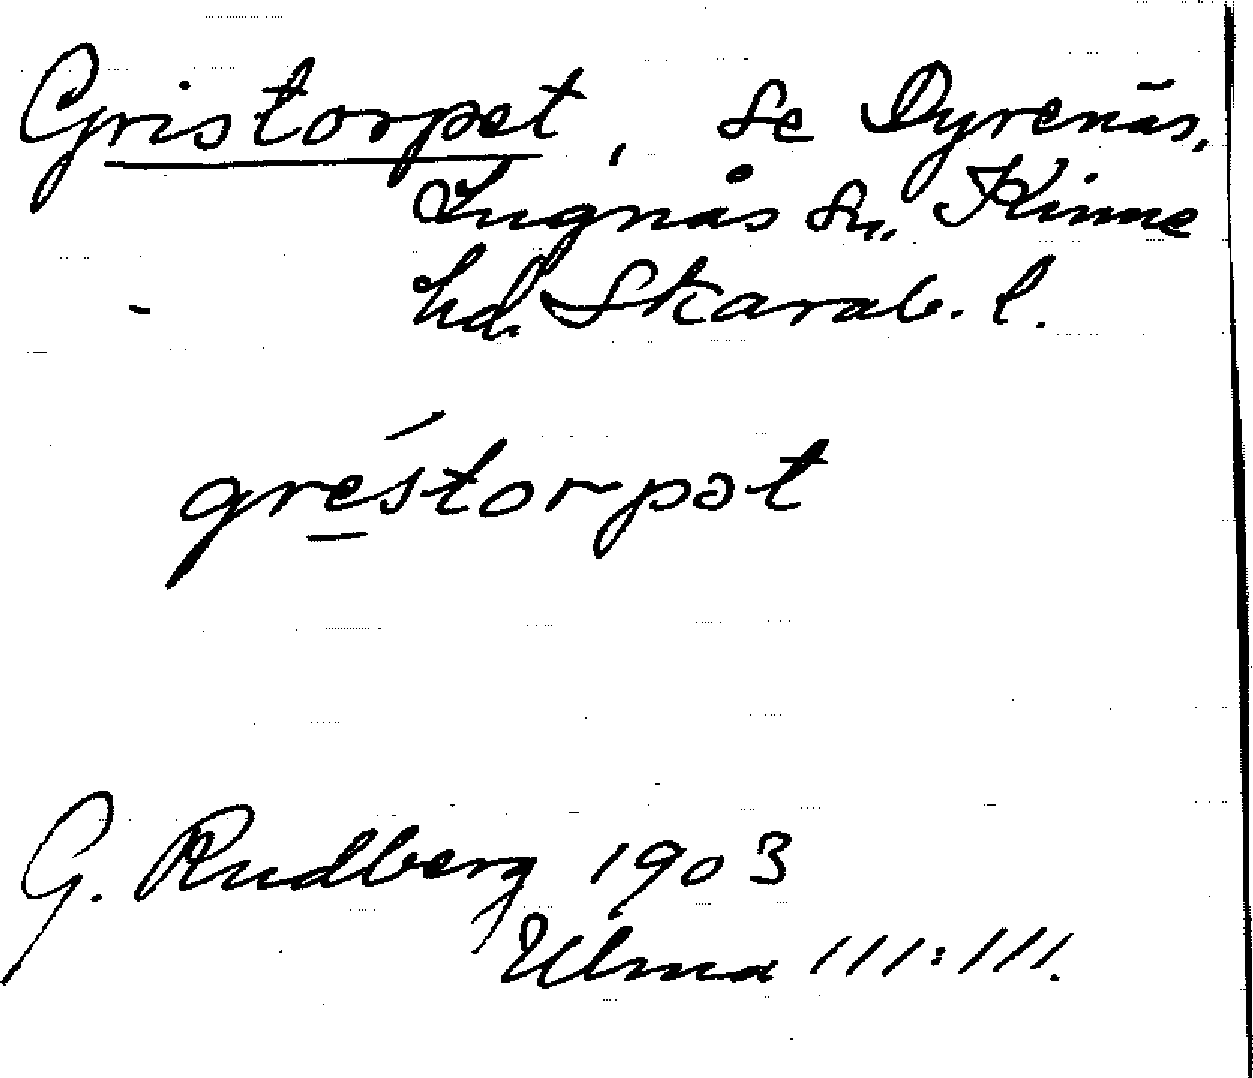 Gristorpet, se Dyrenäs,
Lugnås sn, Kinne
hd. Skarab. l.
gréstorpət
G. Rudberg 1903
Ulma 111:111.